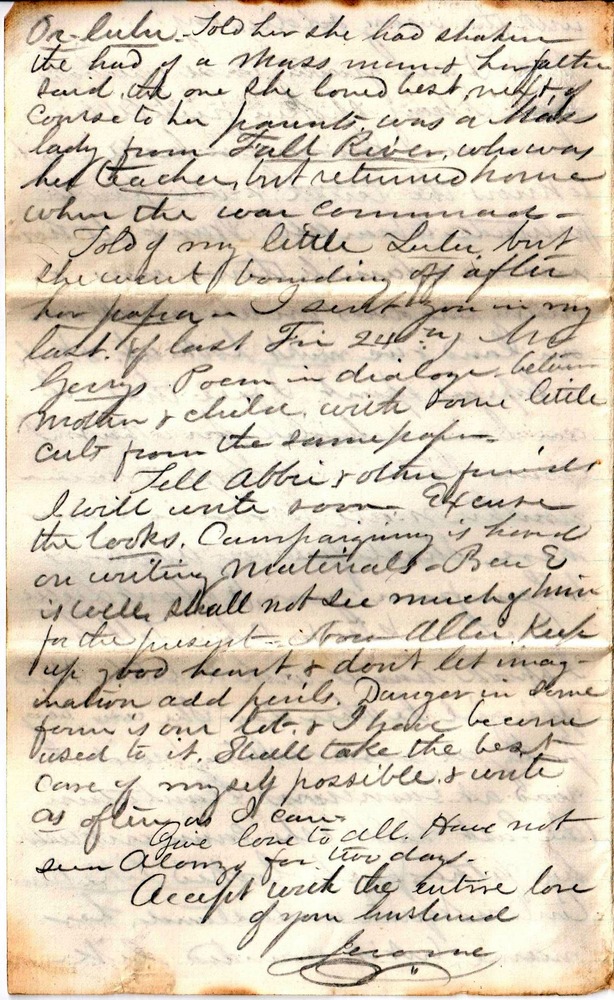 Or Lulu. Told her she had shaken
the had of a Mass man & her father
said the one she loved best, next of
course to her parents, was a Mass
lady from Fall River, who was
her teacher, but returned home
when the war commenced -
Told of my little Lulu, but
she went bounding off after
her papa - I sent you in my
last, of last Fri 24th, Mr
Gerrys Poem in dialoge. between
mother & child, with some little
cuts from the same paper -
Tell Abbie & other friends
I will write soon. Excuse
the looks. Campaigning is hard
on writing materials - Ben E
is well, shall not see much of him
for the present - Now Allie Keep
up good heart & dont let imag-
ination add perils. Danger in some
form is our lot, & I have become
used to it. Shall take the best
care of myself possible & write
as often as I can.
Give love to all. Have not
seen Alonzo for two days -
Accept with the entire love
of your husband
Jerome